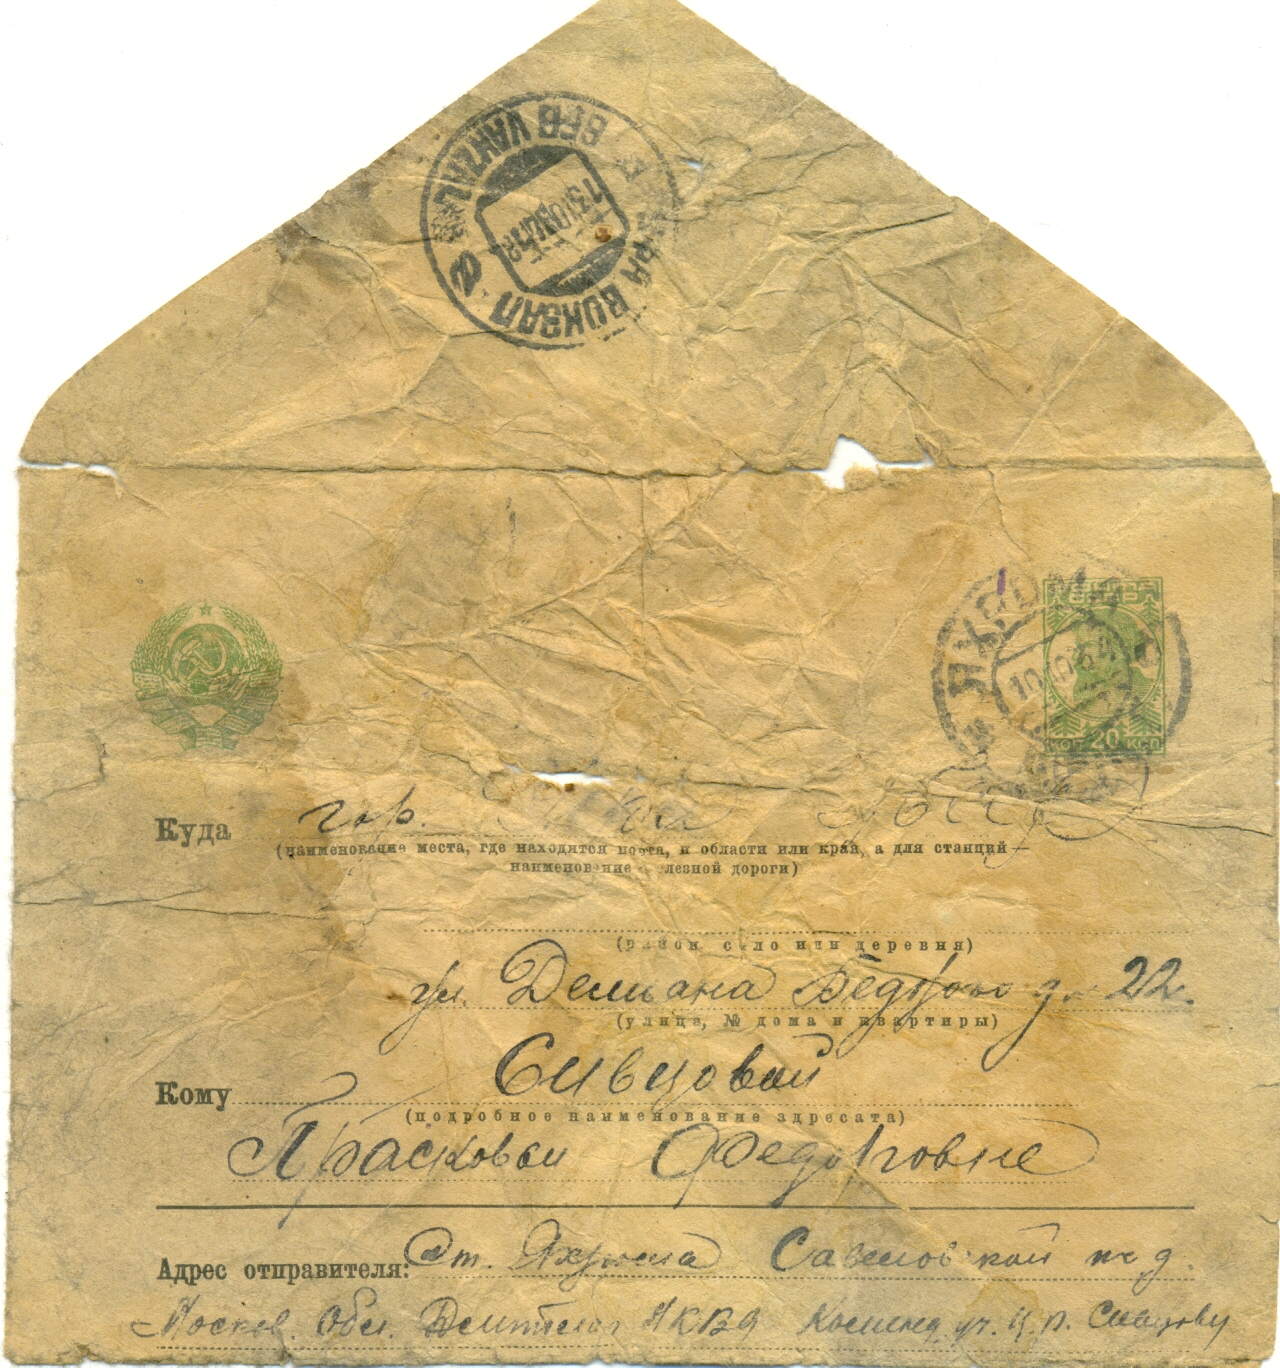 BFB VAKZAL
ВОКЗАЛ
ЯХРОМА
10 10 34
КОП 20 КОП
Куда гор.
(наименование места, где находится почта, и области или края, а для станций —
наименование железной дороги)
(район село или деревня)
ул. Демьяна Бедного д. 22.
(улица, № дома и квартиры)
Кому Сивцовой
(подробное наименование адресата)
Прасковьи Федоровне
Адрес отправителя: Ст. Яхрома Савеловской ж д.
Москов. Обл. Дмитлаг НКВД Сивцову